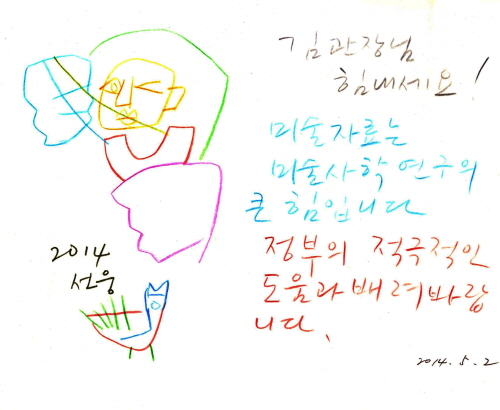 김관장님
힘내세요!
미술자료는
미술사학 연구의
큰 힘입니다
정부의 적극적인
도움과 배려바랍
니다.
2014
선웅
2014. 5. 2